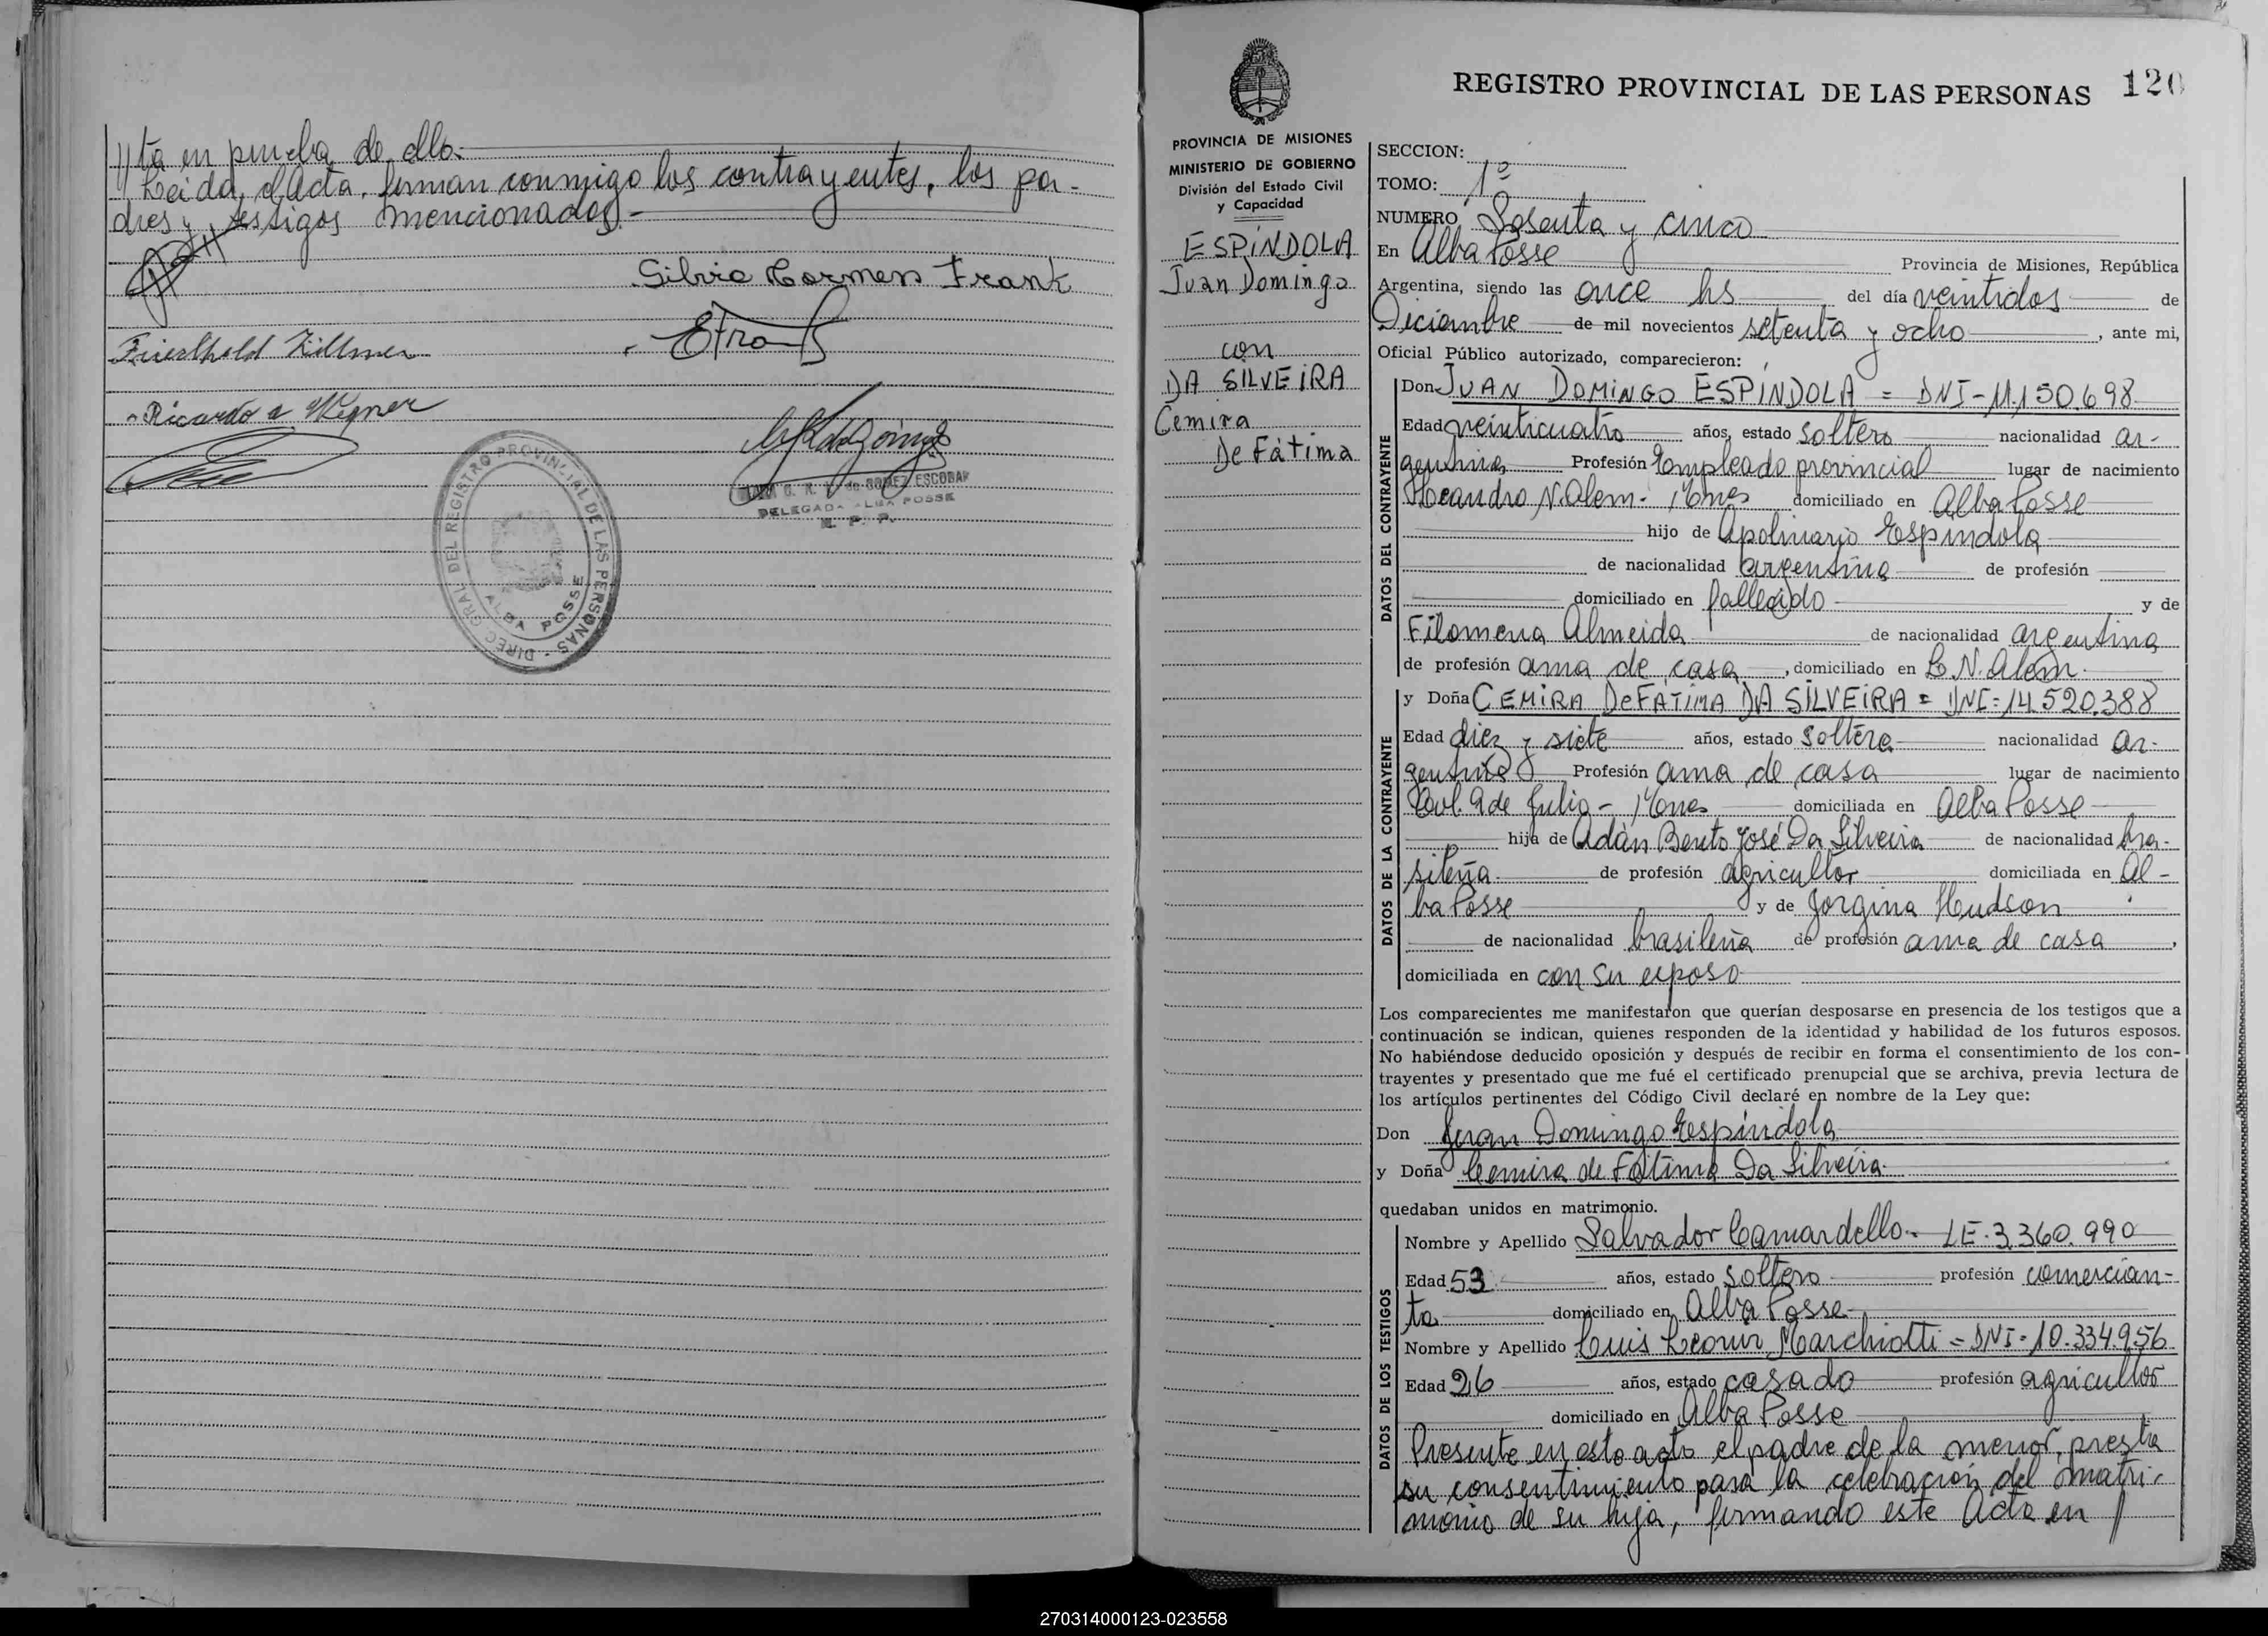 //ta en prueba de ello.-
Leida el Acta, firman conmigo los contrayentes, los pa-
dres y testigos mencionados.-
Silvia Carmen Frank
EFrank
Zillmer
Ricardo a Wegner
DIREC. GRAL. DEL REGISTRO PROVINCIAL DE LAS PERSONAS -
ALBA POSSE
de GOMEZ ESCOBAR
DELEGADA ALBA POSSE
R. P. P.
REGISTRO PROVINCIAL DE LAS PERSONAS 120
PROVINCIA DE MISIONES
MINISTERIO DE GOBIERNO
División del Estado Civil
y Capacidad
ESPÍNDOLA
Juan Domingo
con
DA SILVEIRA
Cemira
De Fátima
SECCION:
TOMO: 1º
NUMERO Sesenta y cinco
En Alba Posse Provincia de Misiones, República
Argentina, siendo las once hs del día veintidos de
Diciembre de mil novecientos setenta y ocho, ante mi,
Oficial Público autorizado, comparecieron:
DATOS DEL CONTRAYENTE
Don JUAN DOMINGO ESPÍNDOLA = DNI-11.150.698
Edad veinticuatro años, estado soltero nacionalidad ar-
gentina Profesión Empleado provincial lugar de nacimiento
Leandro N. Alem - Mnes domiciliado en Alba Posse
hijo de Apolinario Espíndola
de nacionalidad argentina de profesión
domiciliado en fallecido y de
Filomena Almeida de nacionalidad argentina
de profesión ama de casa, domiciliado en L. N. Alem.
DATOS DE LA CONTRAYENTE
y Doña CEMIRA DE FÁTIMA DA SILVEIRA = DNI=14.520.388
Edad diez y siete años, estado soltera nacionalidad ar-
gentina Profesión ama de casa lugar de nacimiento
Col. 9 de Julio - Mnes domiciliada en Alba Posse
hija de Adán Bento José Da Silveira de nacionalidad bra-
sileña de profesión agricultor domiciliada en Al-
ba Posse y de Jorgina Hudson
de nacionalidad brasileña de profesión ama de casa,
domiciliada en con su esposo
Los comparecientes me manifestaron que querían desposarse en presencia de los testigos que a
continuación se indican, quienes responden de la identidad y habilidad de los futuros esposos.
No habiéndose deducido oposición y después de recibir en forma el consentimiento de los con-
trayentes y presentado que me fué el certificado prenupcial que se archiva, previa lectura de
los artículos pertinentes del Código Civil declaré en nombre de la Ley que:
Don Juan Domingo Espíndola
y Doña Cemira de Fátima Da Silveira
quedaban unidos en matrimonio.
DATOS DE LOS TESTIGOS
Nombre y Apellido Salvador Camardello - LE-3.360.990
Edad 53 años, estado soltero profesión comercian-
te domiciliado en Alba Posse
Nombre y Apellido Luis Marchiotti = DNI-10.334.956
Edad 26 años, estado casado profesión agricultor
domiciliado en Alba Posse
Presente en este acto el padre de la menor, presta
su consentimiento para la celebración del matri-
monio de su hija, firmando este Acta en //
270314000123-023558